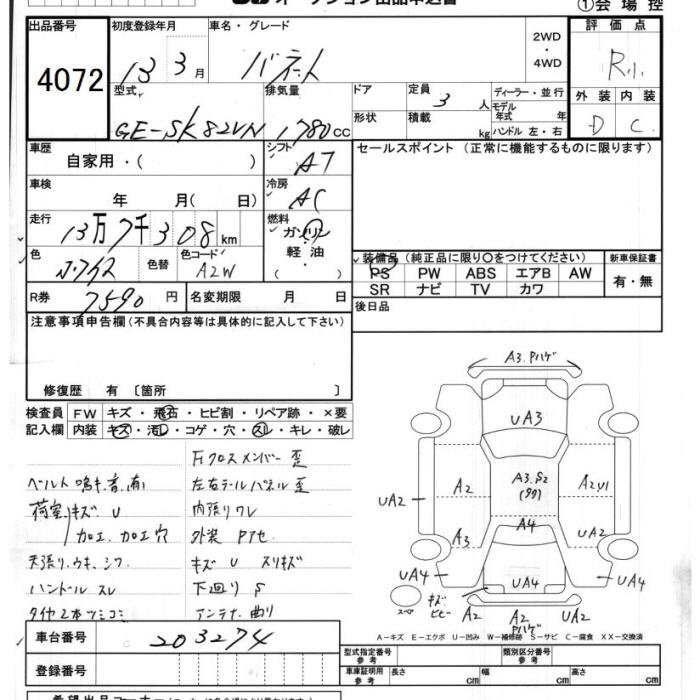 オークション出品申込書
①会場控
出品番号 初度登録年月 車名・グレード 2WD・4WD 評価点
4072 13 3月 バネット R
型式 排気量 ドア 定員 3人 ディーラー・並行 外装 内装
GE-SK82VN 1780cc 形状 積載 kg モデル年式 年 ハンドル 左・右 D C
車歴 シフト セールスポイント (正常に機能するものに限ります)
自家用・( ) AT
車検 冷房
年 月( 日) AC
走行 燃料
13万7千308km ガソリン・軽油
色 色替 色コード 装備品 (純正品に限り○をつけてください) 新車保証書
A2W PS PW ABS エアB AW 有・無
R券 7590円 名変期限 月 日 SR ナビ TV カワ
注意事項申告欄(不具合内容等は具体的に記入して下さい) 後日品
修復歴 有 〔箇所 〕
検査員 FW キズ・飛石・ヒビ割・リペア跡・×要
記入欄 内装 キズ・汚レ・コゲ・穴・スレ・キレ・破レ
Fクロスメンバー歪
ベルト鳴キ音有 左右テールパネル歪
荷室キズ U 内張りワレ
加工、加工穴 外装 Pアセ
天張りウキ、シワ キズ U スリキズ
ハンドルスレ 下廻り S
タイヤ2本ツミコミ アンテナ曲り
A3.Pハゲ
UA3
A3.S2
A2 A2.U1
UA2
A3 A4 UA2
UA4 UA4 UA4
スペア キズ ヒビ A2 A2 UA2
Pハゲ
A-キズ E-エクボ U-凹み W-補修跡 S-サビ C-腐食 XX-交換済
車台番号 203274
型式指定番号 参考 類別区分番号 参考
登録番号
車庫証明用 参考 長さ cm 幅 cm 高さ cm